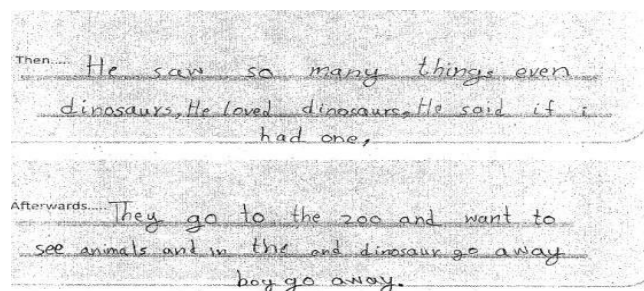 Then..... He saw so many things even
dinosaurs, He loved dinosaurs, He said if i
had one,
Afterwards..... They go to the zoo and want to
see animals and in the end dinosaur go away
boy go away.